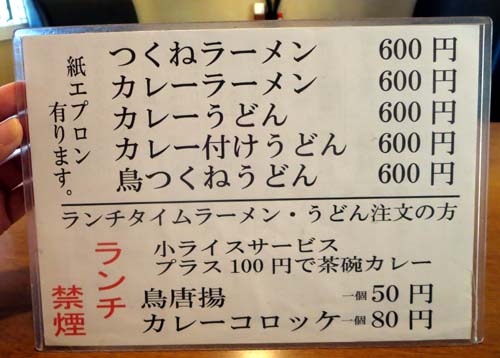 つくねラーメン 600円
カレーラーメン 600円
カレーうどん 600円
カレー付けうどん 600円
鳥つくねうどん 600円
紙エプロン
有ります。
ランチタイムラーメン・うどん注文の方
小ライスサービス
プラス100円で茶碗カレー
鳥唐揚 一個50円
カレーコロッケ一個80円
ランチ
禁煙